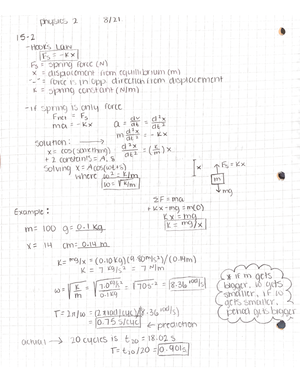 physics 2 8/21
15-2
-Hooks Law
Fs = -Kx
Fs = spring force (N)
x = displacement from equilibrium (m)
"-" = force is in opp. direction from displacement
K = spring constant (N/m)
-if spring is only force
Fnet = Fs
ma = -Kx a = dv/dt = d²x/dt²
m d²x/dt² = -Kx
Solution:
x = cos(something) d²x/dt² = (k/m)x
+ 2 constants = A, δ
Solving x = A cos(ωt+δ)
where ω² = k/m
ω = √k/m
x Fs = Kx
m
mg
ΣF = ma
+Kx-mg = m(0)
Kx = mg
K = mg/x
Example:
m = 100 g = 0.1 kg
x = 14 cm = 0.14 m
K = mg/x = (0.10kg)(9.80m/s²)/(0.14m)
K = 7 kg/s² = 7 N/m
ω = √k/m = √7.0 kg/s²/0.1kg = √70 s⁻² = 8.36 rad/s
T = 2π/ω = (2π rad/cyc)/8.36 rad/s
= 0.75 s/cyc ← prediction
actual → 20 cycles is t20 = 18.02s
T = t20/20 = 0.901s
* if m gets
bigger, ω gets
smaller, if ω
gets smaller,
period gets bigger